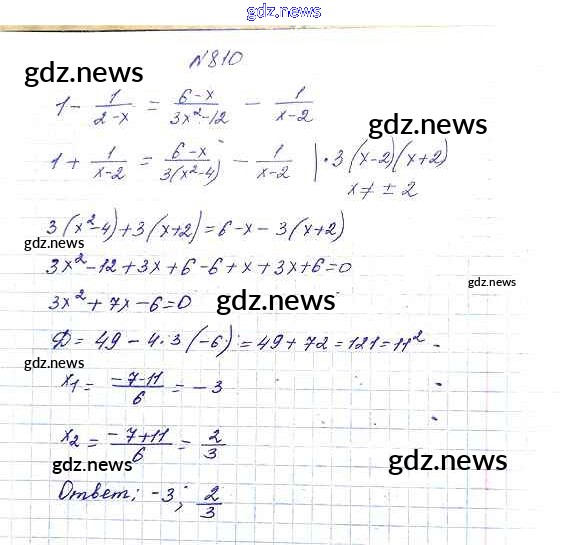 gdz.news
№810
gdz.news
1 - 1/(2-x) = (6-x)/(3x²-12) - 1/(x-2)
gdz.news
1 + 1/(x-2) = (6-x)/(3(x²-4)) - 1/(x-2) | ·3(x-2)(x+2)
x ≠ ±2
3(x²-4)+3(x+2)=6-x-3(x+2)
gdz.news
3x²-12+3x+6-6+x+3x+6=0
gdz.news
3x²+7x-6=0
gdz.news
D = 49-4·3(-6) = 49+72=121=11²
gdz.news
x₁ = (-7-11)/6 = -3
x₂ = (-7+11)/6 = 2/3
gdz.news
gdz.news
Ответ: -3; 2/3